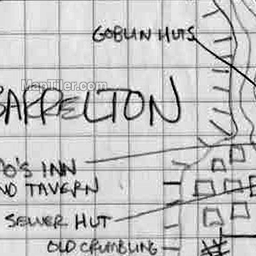 GOBLIN HUTS
MapTiler.com
BARRELTON
O'S INN
AND TAVERN
SEWER HUT
OLD CRUMBLING